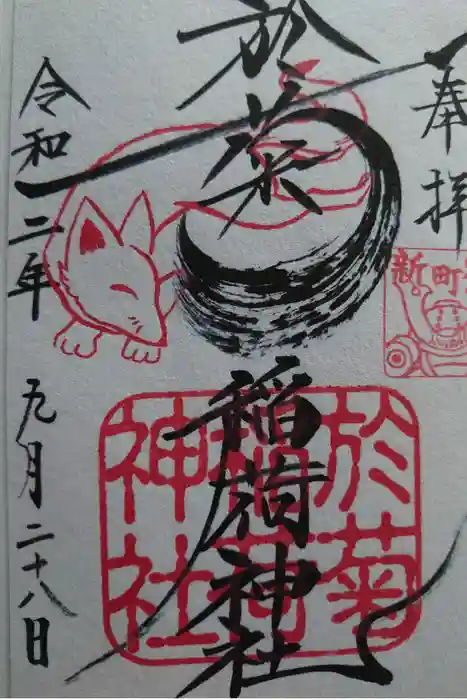 奉拝
新町
於菊稲荷神社
於菊
稲荷
神社
令和二年
九月二十八日